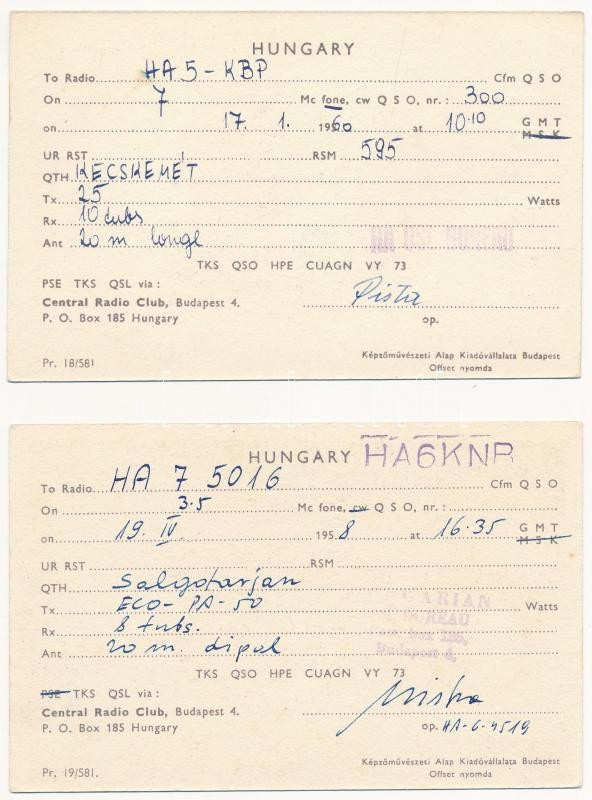 HUNGARY
To Radio HA5-KBP Cfm QSO
On 7 Mc fone, cw QSO, nr.: 300
on 17. 1. 1960 at 10.10 GMT
MSK
UR RST RSM 595
QTH KECSKEMÉT
Tx 25 Watts
Rx 10 tubs
Ant 20 m longl
HA QSL BUREAU
TKS QSO HPE CUAGN VY 73
PSE TKS QSL via:
Central Radio Club, Budapest 4. Pista
P. O. Box 185 Hungary op.
Pr. 18/581 Képzőművészeti Alap Kiadóvállalata Budapest
Offset nyomda
HUNGARY HA6KNB
To Radio HA 7 5016 Cfm QSO
On 3.5 Mc fone, cw QSO, nr.:
on 19. IV 1958 at 16.35 GMT
MSK
UR RST RSM
QTH Salgotarjan
Tx ECO-PA-50 Watts
Rx 8 tubs.
Ant 20 m. dipol
BUREAU
Budapest 4.
TKS QSO HPE CUAGN VY 73
PSE TKS QSL via:
Central Radio Club, Budapest 4.
P. O. Box 185 Hungary op. HA-6-4519
Pr. 19/581. Képzőművészeti Alap Kiadóvállalata Budapest
Offset nyomda